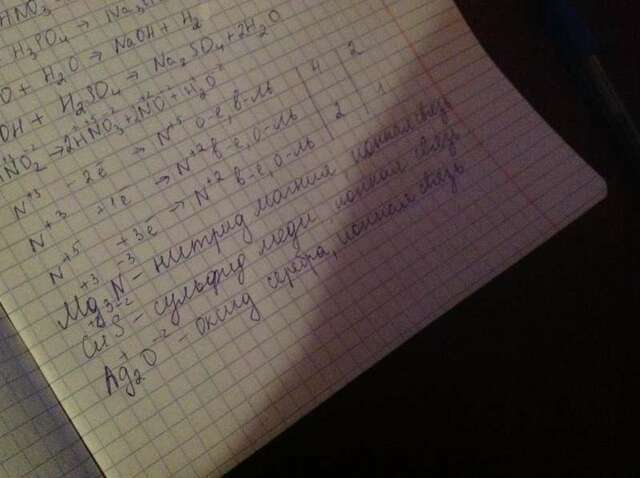 HNO3
H3PO4 → Na3
O + H2O → NaOH + H2
OH + H2SO4 → Na2SO4 + 2H2O
HNO2 → 2HNO3 + 2NO + H2O
N+3 - 2ē → N+5 о-е, в-ль | 4 | 2
N+3 +1ē → N+2 в-е, о-ль | 2 | 1
N+5 +3ē → N+2 в-е, о-ль
Mg3N - нитрид магния, ионная связь
CuS - сульфид меди, ионная связь
Ag2O - оксид серебра, ионная связь